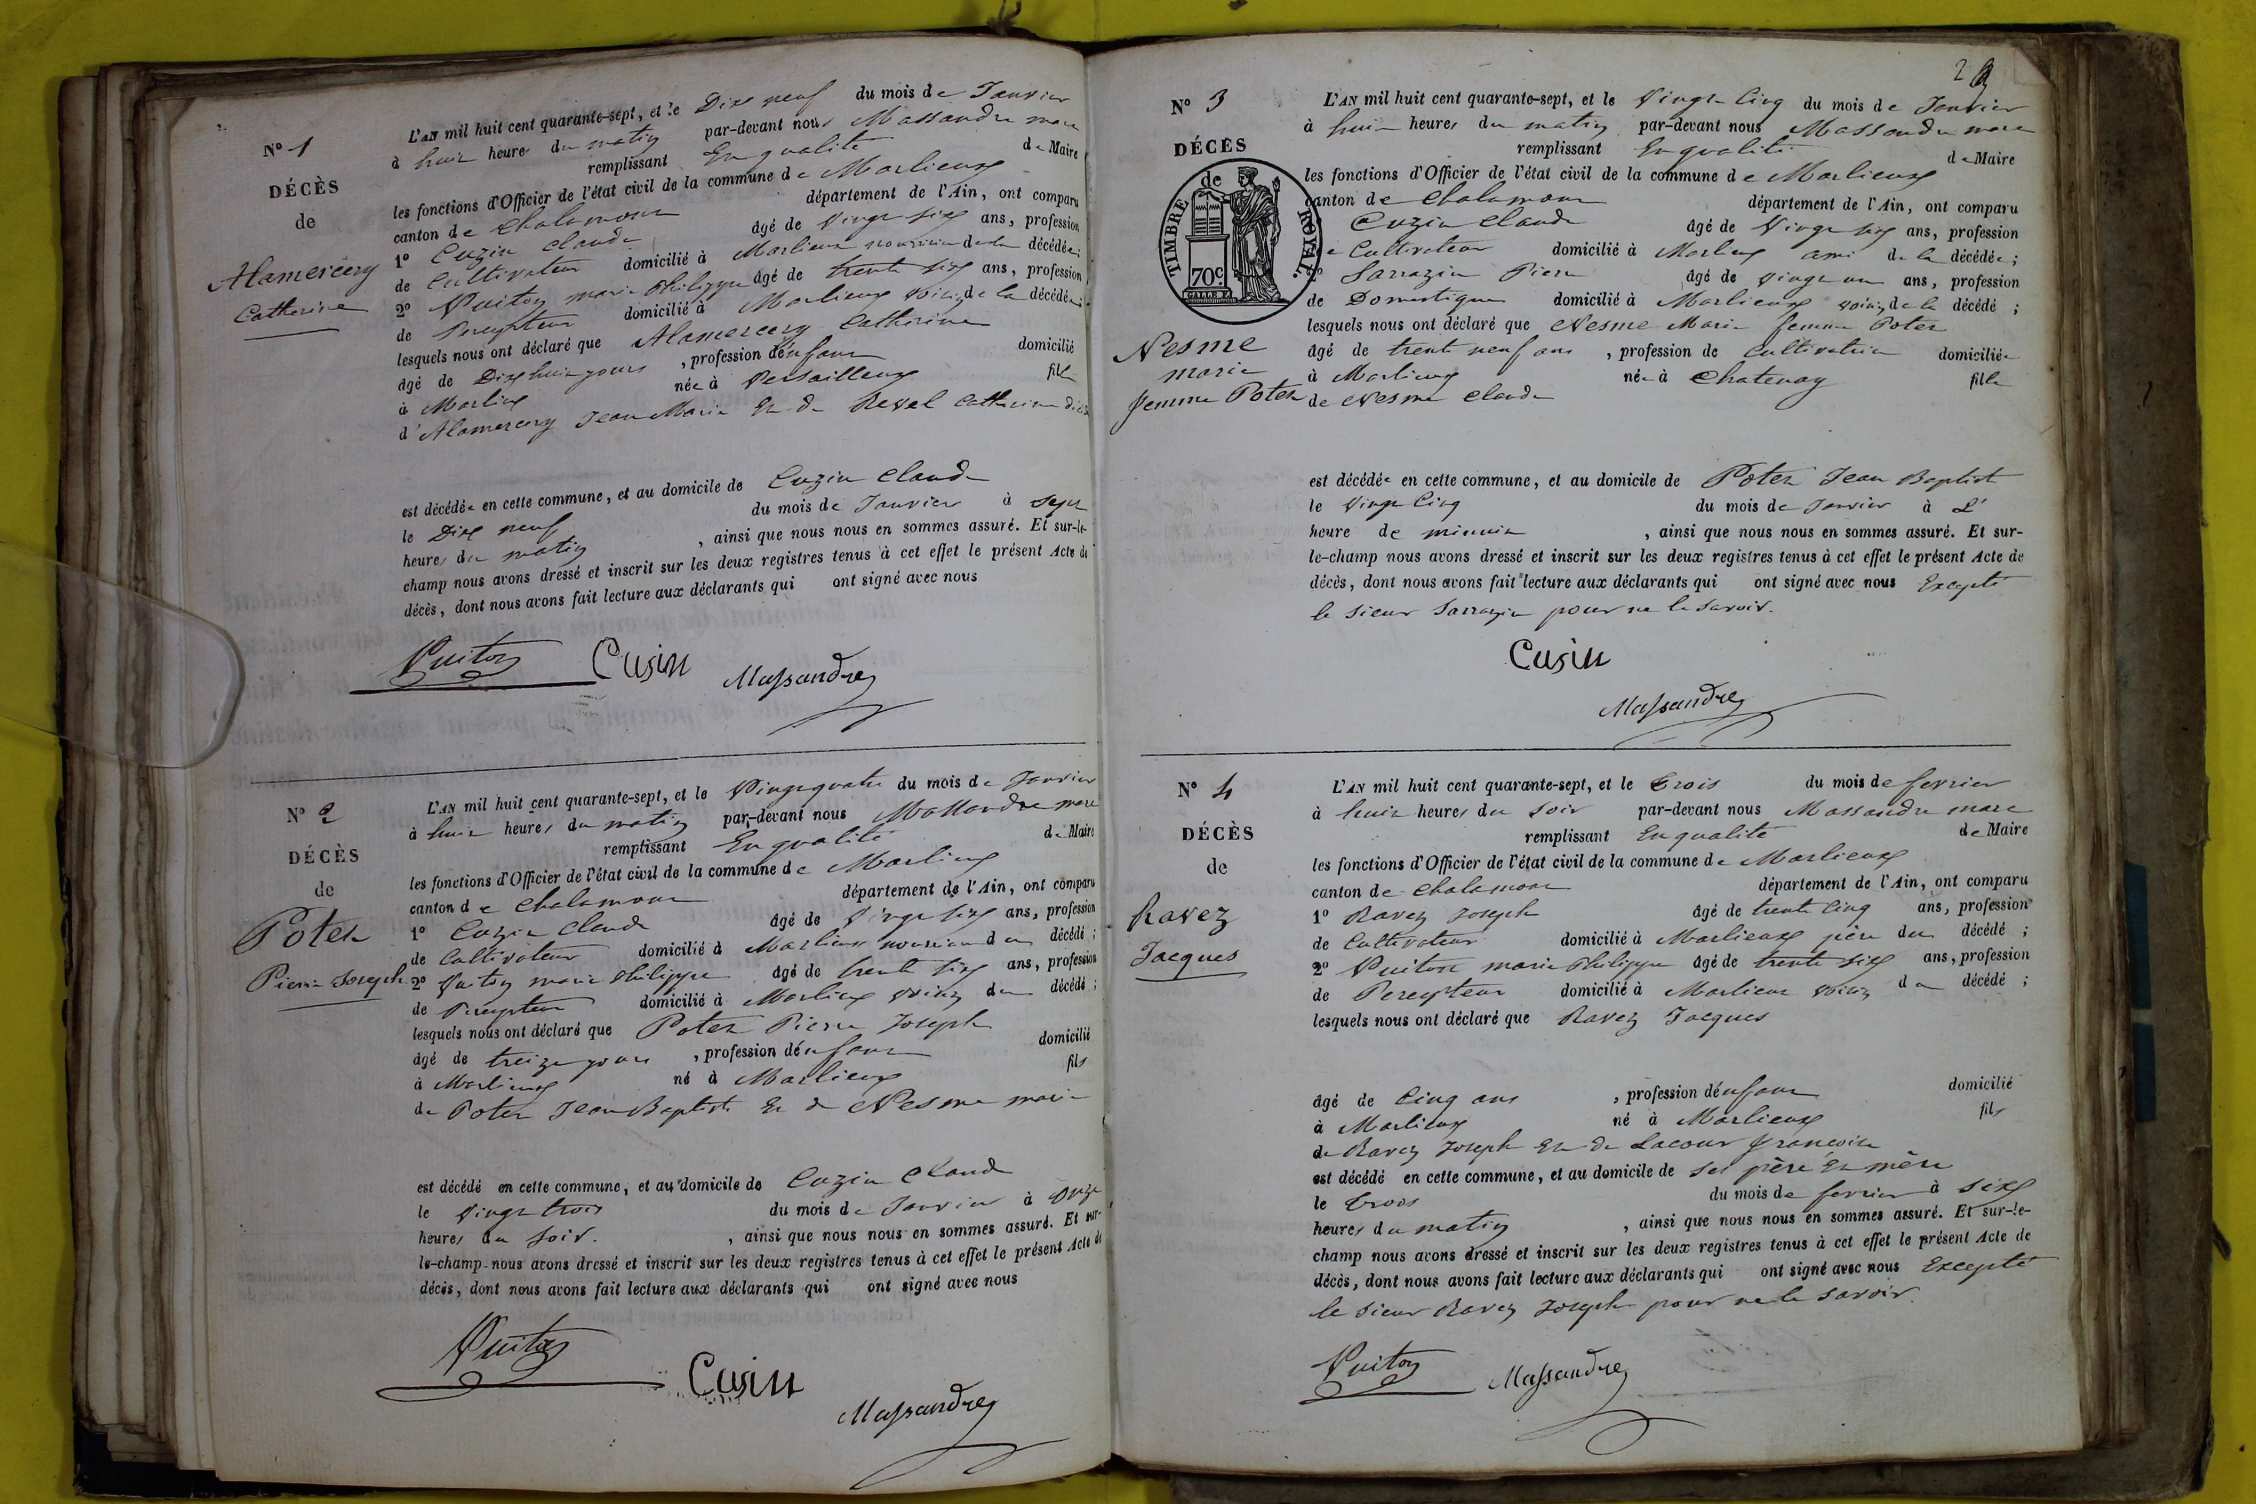 N° 1
DÉCÈS
de
Alamercery
Catherine
L'AN mil huit cent quarante-sept, et le Dix neuf du mois de Janvier
à huit heures du matin par-devant nous Massandre marc
remplissant En qualité de Maire
les fonctions d'Officier de l'état civil de la commune de Marlieux
canton de Chalamont département de l'Ain, ont comparu
1° Cuzin Claude âgé de Vingt six ans, profession
de Cultivateur domicilié à Marlieux nourricier de la décédée;
2° Vuiton marie Philippe âgé de trente six ans, profession
de Percepteur domicilié à Marlieux voisin de la décédée;
lesquels nous ont déclaré que Alamercery Catherine
âgé de Dix huit jours, profession d'énfant domicilié
à Marlieux née à Versailleux fille
d'Alamercery Jean Marie Et de Revel Catherine
est décédée en cette commune, et au domicile de Cuzin Claude
le Dix neuf du mois de Janvier à sept
heures du matin, ainsi que nous nous en sommes assuré. Et sur-le-
champ nous avons dressé et inscrit sur les deux registres tenus à cet effet le présent Acte de
décès, dont nous avons fait lecture aux déclarants qui ont signé avec nous
Vuiton Cusin Massandre
N° 2
DÉCÈS
de
Poter
Pierre Joseph
L'AN mil huit cent quarante-sept, et le Vingt quatre du mois de Janvier
à huit heures du matin par-devant nous Massandre marc
remplissant En qualité de Maire
les fonctions d'Officier de l'état civil de la commune de Marlieux
canton de Chalamont département de l'Ain, ont comparu
1° Cuzin Claude âgé de Vingt six ans, profession
de Cultivateur domicilié à Marlieux nourricier du décédé;
2° Vuiton marie Philippe âgé de trente six ans, profession
de Percepteur domicilié à Marlieux voisin du décédé;
lesquels nous ont déclaré que Poter Pierre Joseph
âgé de treize jours, profession d'énfant domicilié
à Marlieux né à Marlieux fils
de Poter Jean Baptiste Et de Nesme marie
est décédé en cette commune, et au domicile de Cuzin Claude
le Vingt trois du mois de Janvier à onze
heures du soir., ainsi que nous nous en sommes assuré. Et sur-
le-champ nous avons dressé et inscrit sur les deux registres tenus à cet effet le présent Acte de
décès, dont nous avons fait lecture aux déclarants qui ont signé avec nous
Vuiton Cusin Massandre
2
N° 3
DÉCÈS
de
TIMBRE ROYAL.
70c.
Nesme
marie
femme Poter
L'AN mil huit cent quarante-sept, et le Vingt Cinq du mois de Janvier
à huit heures du matin par-devant nous Massandre marc
remplissant En qualité de Maire
les fonctions d'Officier de l'état civil de la commune de Marlieux
canton de Chalamont département de l'Ain, ont comparu
Cuzin Claude âgé de Vingt six ans, profession
de Cultivateur domicilié à Marlieux ami de la décédée;
Sarrazin Pierre âgé de vingt un ans, profession
de Domestique domicilié à Marlieux voisin de la décédé;
lesquels nous ont déclaré que Nesme Marie femme Poter
âgé de trente neuf ans, profession de Cultivatrice domiciliée
à Marlieux née à Chatenay fille
de Nesme Claude
est décédée en cette commune, et au domicile de Poter Jean Baptiste
le Vingt Cinq du mois de Janvier à L'
heure de minuit, ainsi que nous nous en sommes assuré. Et sur-
le-champ nous avons dressé et inscrit sur les deux registres tenus à cet effet le présent Acte de
décès, dont nous avons fait lecture aux déclarants qui ont signé avec nous Excepté
le sieur Sarrazin pour ne le savoir.
Cusin
Massandre
N° 4
DÉCÈS
de
Ravez
Jacques
L'AN mil huit cent quarante-sept, et le trois du mois de fevrier
à huit heures du soir par-devant nous Massandre marc
remplissant En qualité de Maire
les fonctions d'Officier de l'état civil de la commune de Marlieux
canton de Chalamont département de l'Ain, ont comparu
1° Ravez Joseph âgé de trente Cinq ans, profession
de Cultivateur domicilié à Marlieux père du décédé;
2° Vuiton marie Philippe âgé de trente six ans, profession
de Percepteur domicilié à Marlieux voisin du décédé;
lesquels nous ont déclaré que Ravez Jacques
âgé de Cinq ans, profession d'énfant domicilié
à Marlieux né à Marlieux fils
de Ravez Joseph Et de Lacour françoise
est décédé en cette commune, et au domicile de ses père Et mère
le trois du mois de fevrier à six
heures du matin, ainsi que nous nous en sommes assuré. Et sur-le-
champ nous avons dressé et inscrit sur les deux registres tenus à cet effet le présent Acte de
décès, dont nous avons fait lecture aux déclarants qui ont signé avec nous Excepté
le sieur Ravez Joseph pour ne le savoir.
Vuiton Massandre